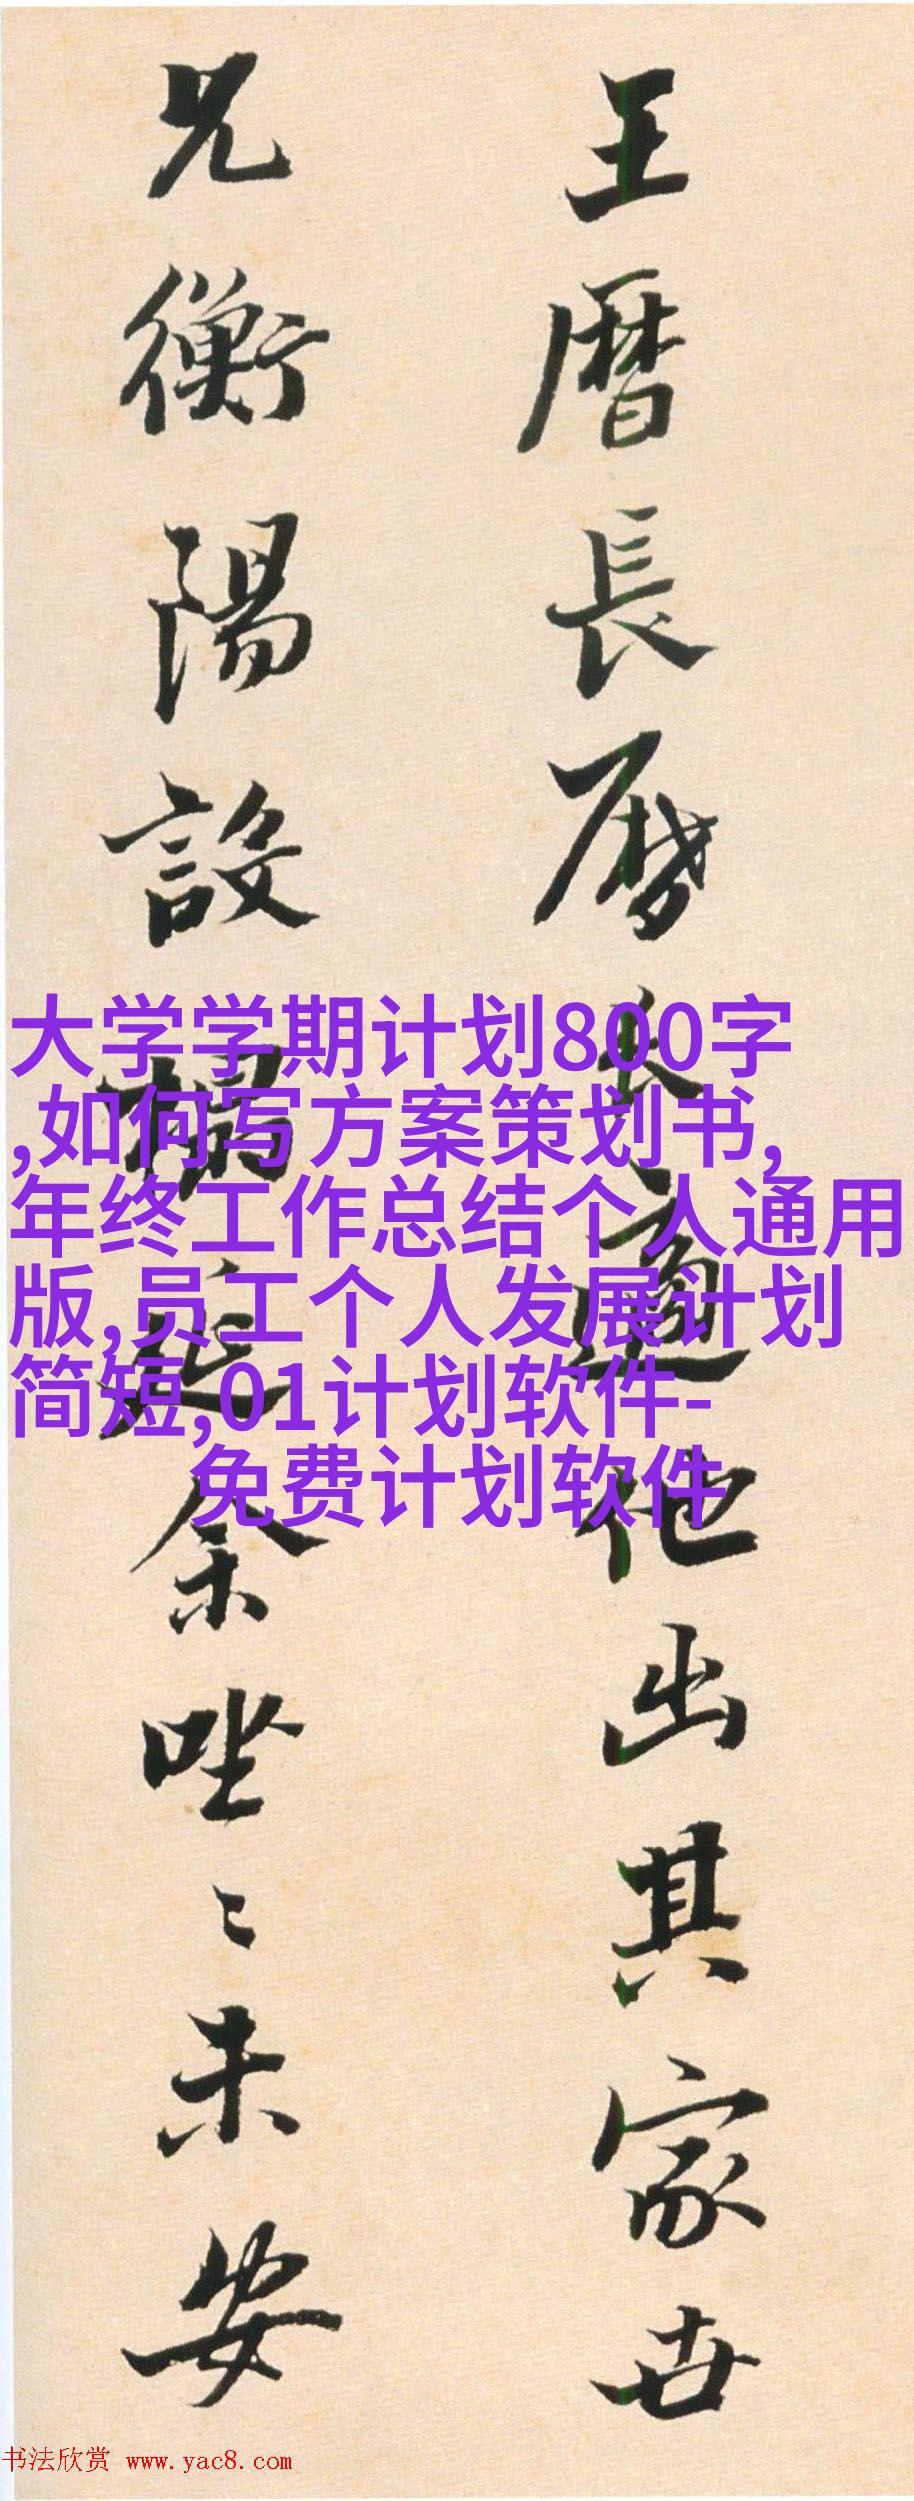 王曆長曆
長適他出其家女
兄衡陽設
榻延余坐〻未安
大学学期计划800字
,如何写方案策划书,
年终工作总结个人通用
版,员工个人发展计划
简短,01计划软件-
免费计划软件
书法欣赏 www.yac8.com